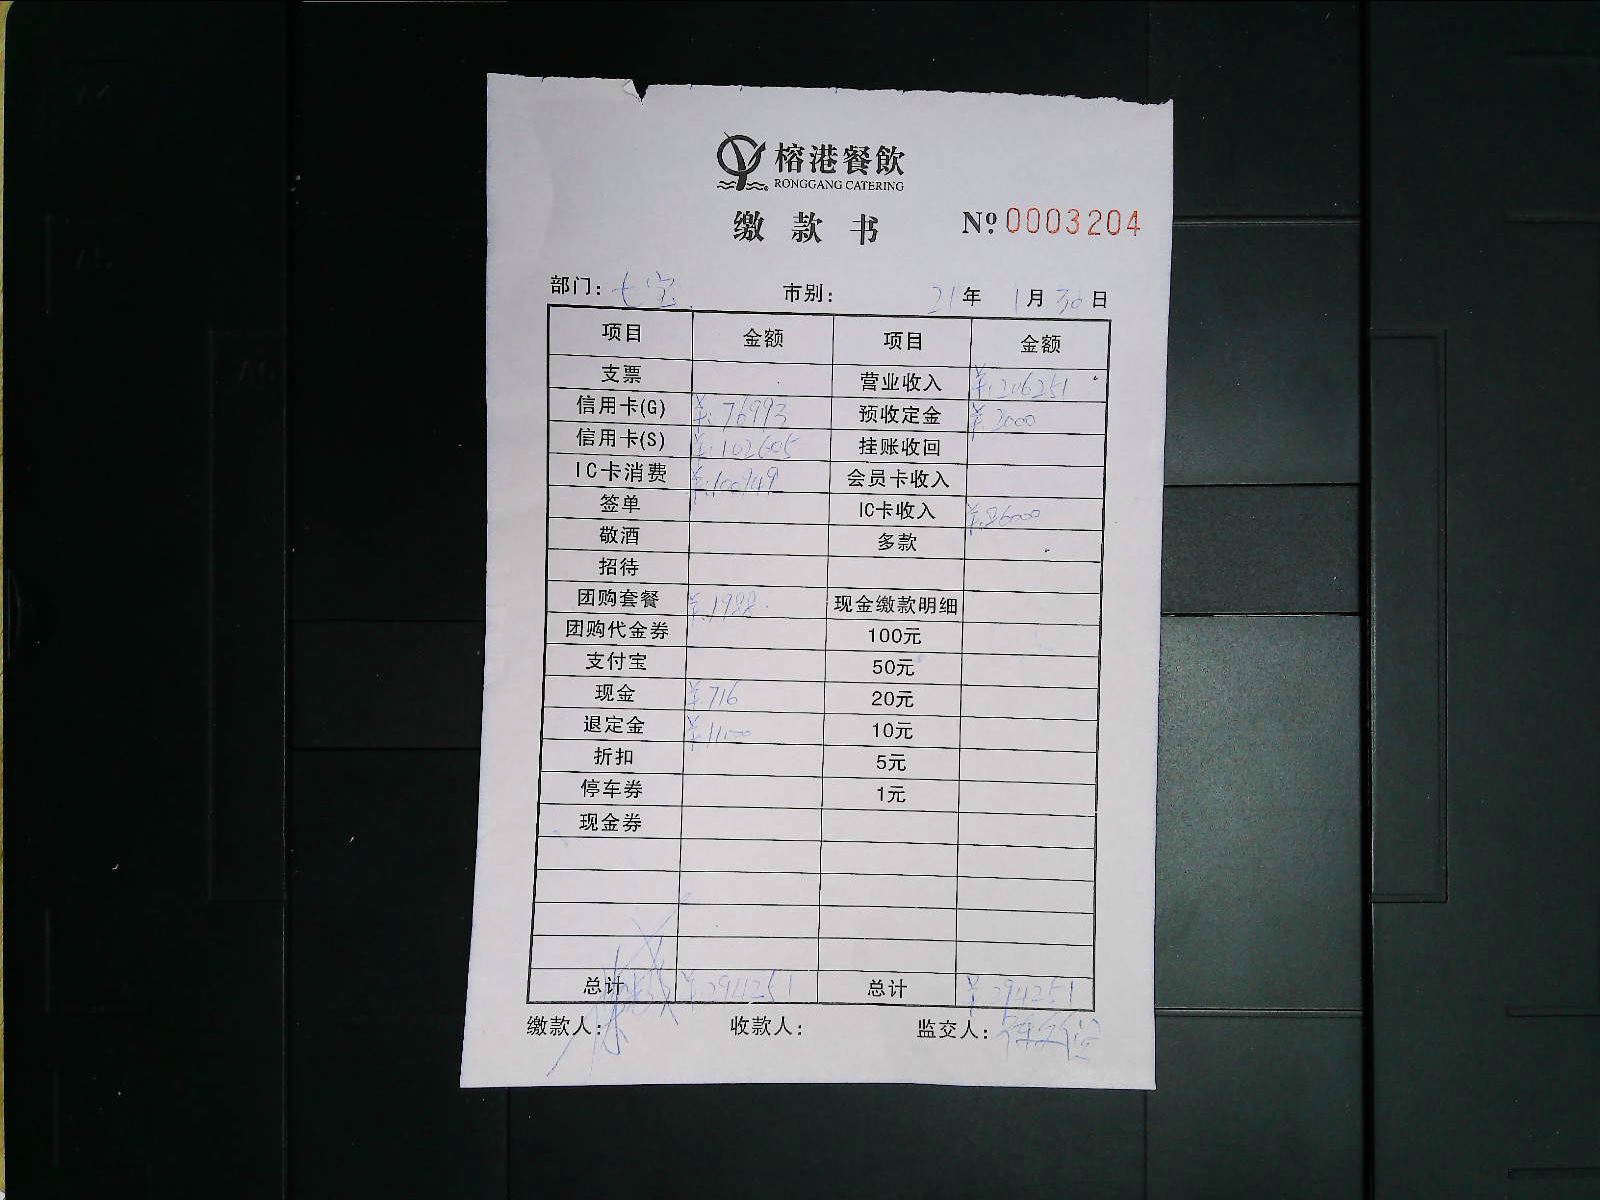 榕港餐飲
RONGGANG CATERING
缴款书 Nº 0003204
部门: 七宝 市别: 21年 1月 30日
项目 金额 项目 金额
支票 营业收入 ¥:206251
信用卡(G) ¥:76993 预收定金 ¥:2000
信用卡(S) ¥:102605 挂账收回
IC卡消费 ¥:100949 会员卡收入
签单 IC卡收入 ¥:86000
敬酒 多款
招待
团购套餐 ¥:1988 现金缴款明细
团购代金券 100元
支付宝 50元
现金 ¥:716 20元
退定金 ¥:11000 10元
折扣 5元
停车券 1元
现金券
总计 ¥:294251 总计 ¥:294251
缴款人: 收款人: 监交人: